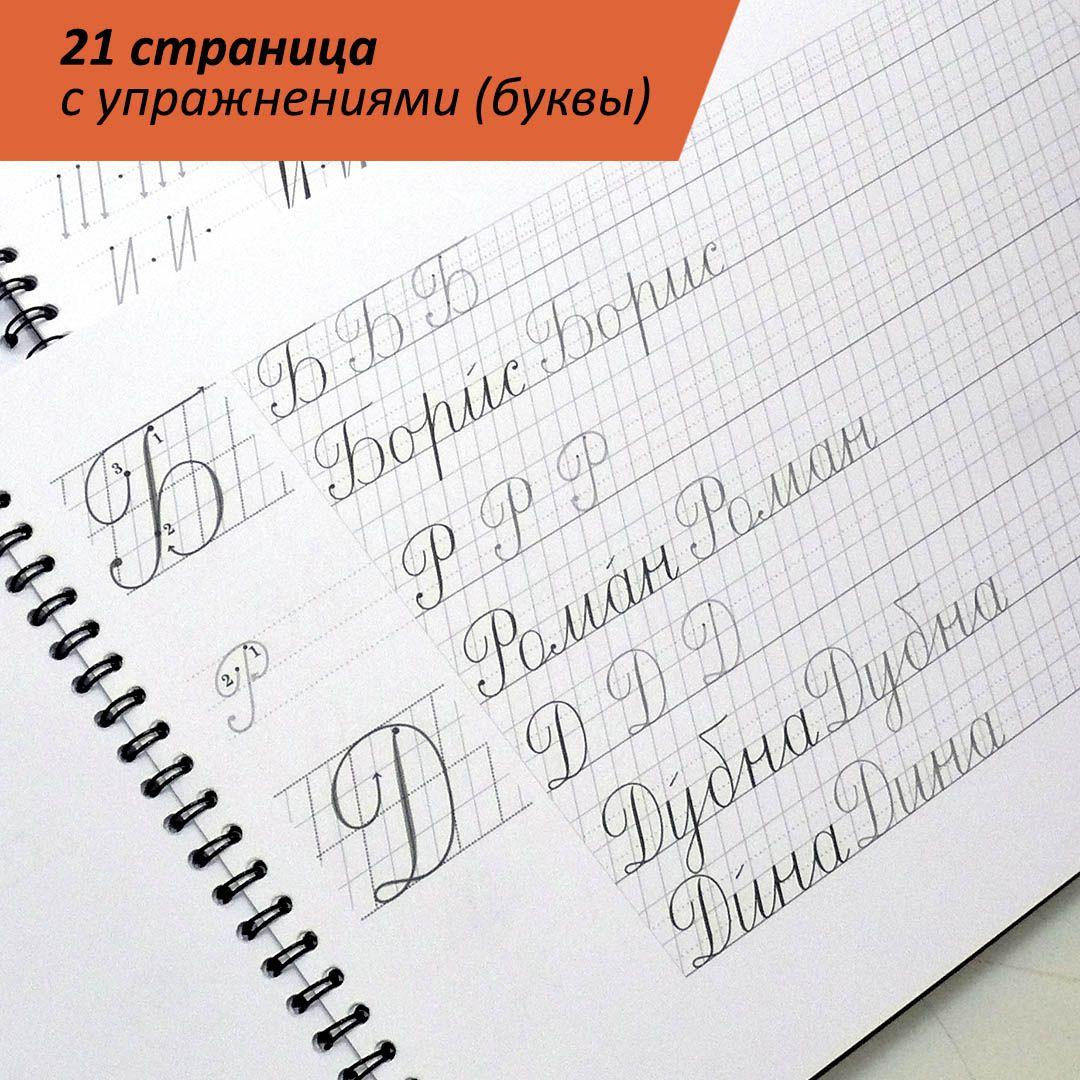 21 страница
с упражнениями (буквы)
И И
И И
Б Б Б
Бори́с Борис
1
3
2
Б
Р Р Р
Рома́н Роман
2 1
Р
Д Д Д
Ду́бна Дубна
Ди́на Дина
Д